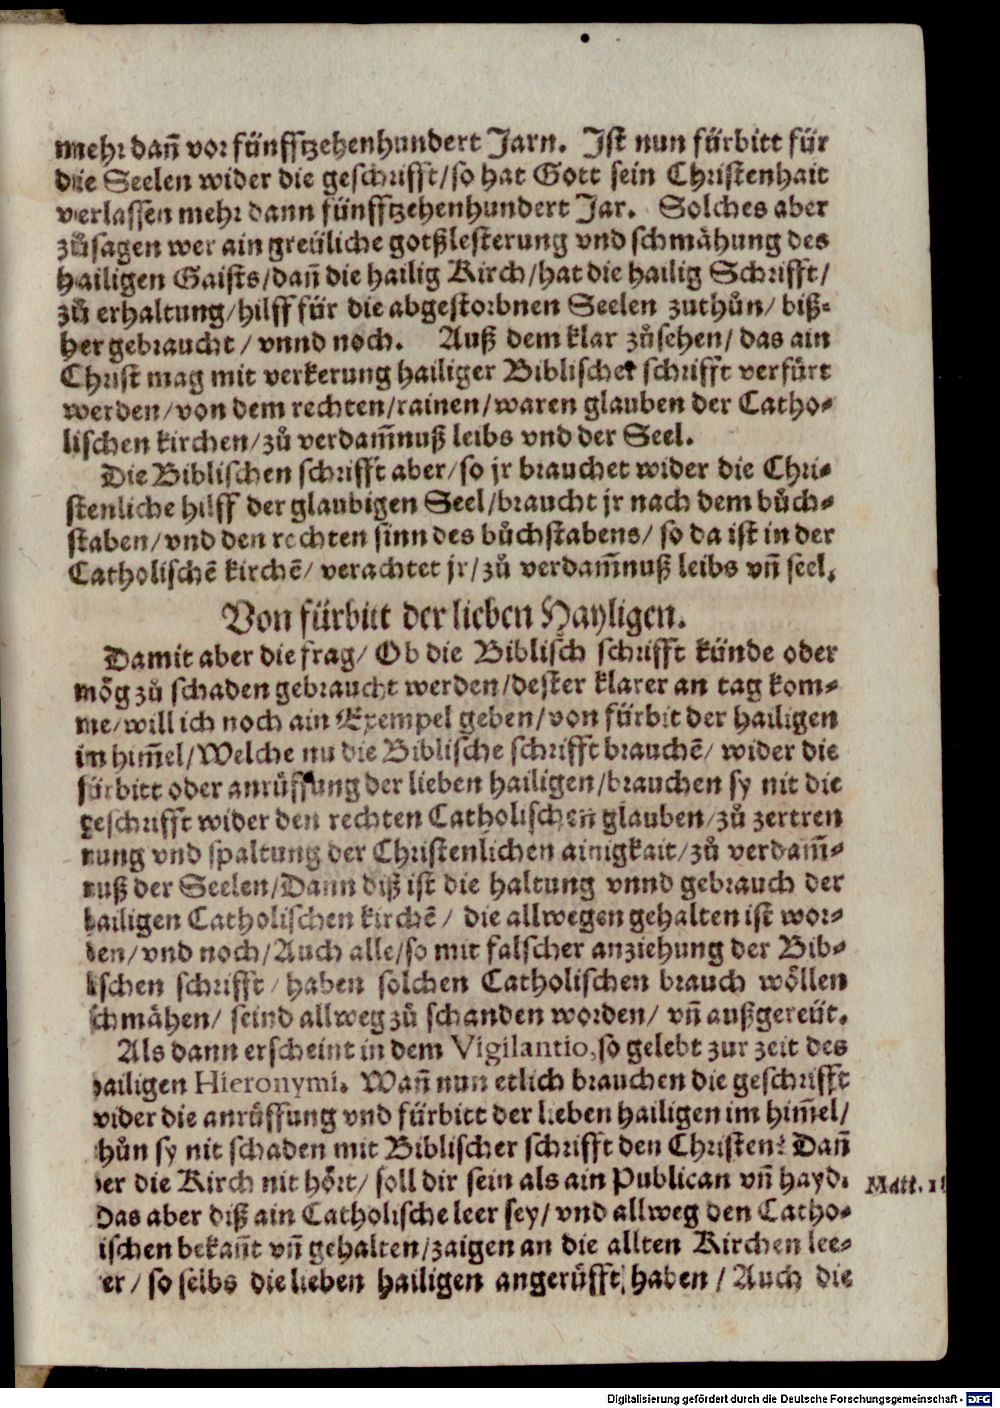 mehr dañ vor fünfftzehenhundert Jarn. Ist nun fürbitt für
die Seelen wider die geschrifft/so hat Gott sein Christenhait
verlassen mehr dann fünfftzehenhundert Jar. Solches aber
zůsagen wer ain greüliche gotßlesterung vnd schmähung des
hailigen Gaists/dañ die hailig Kirch/hat die hailig Schrifft/
zů erhaltung/hilff für die abgestorbnen Seelen zuthůn/biß-
her gebraucht/vnnd noch. Auß dem klar zůsehen/das ain
Christ mag mit verkerung hailiger Biblischer schrifft verfürt
werden/von dem rechten/rainen/waren glauben der Catho-
lischen kirchen/zů verdam̃nuß leibs vnd der Seel.
Die Biblischen schrifft aber/so jr brauchet wider die Chri-
stenliche hilff der glaubigen Seel/braucht jr nach dem bůch-
staben/vnd den rechten sinn des bůchstabens/so da ist in der
Catholischẽ kirchẽ/verachtet jr/zů verdam̃nuß leibs vñ seel.
Von fürbitt der lieben Hayligen.
Damit aber die frag/Ob die Biblisch schrifft künde oder
mög zů schaden gebraucht werden/dester klarer an tag kom-
me/will ich noch ain Exempel geben/von fürbit der hailigen
im him̃el/Welche nu die Biblische schrifft brauchẽ/wider die
fürbitt oder anrüffung der lieben hailigen/brauchen sy nit die
geschrifft wider den rechten Catholischen glauben/zů zertren
nung vnd spaltung der Christenlichen ainigkait/zů verdam̃-
nuß der Seelen/Dann diß ist die haltung vnnd gebrauch der
hailigen Catholischen kirchẽ/die allwegen gehalten ist wor-
den/vnd noch/Auch alle/so mit falscher anziehung der Bib-
lischen schrifft/haben solchen Catholischen brauch wöllen
schmähen/seind allweg zů schanden worden/vñ außgereüt.
Als dann erscheint in dem Vigilantio,so gelebt zur zeit des
hailigen Hieronymi. Wañ nun etlich brauchen die geschrifft
wider die anrüffung vnd fürbitt der lieben hailigen im him̃el/
thůn sy nit schaden mit Biblischer schrifft den Christen? Dañ
der die Kirch nit hört/soll dir sein als ain Publican vñ hayd.
Matt. 18
Das aber diß ain Catholische leer sey/vnd allweg den Catho-
lischen bekañt vñ gehalten/zaigen an die allten Kirchen lee-
rer/so selbs die lieben hailigen angerüfft haben/Auch die
Digitalisierung gefördert durch die Deutsche Forschungsgemeinschaft - DFG